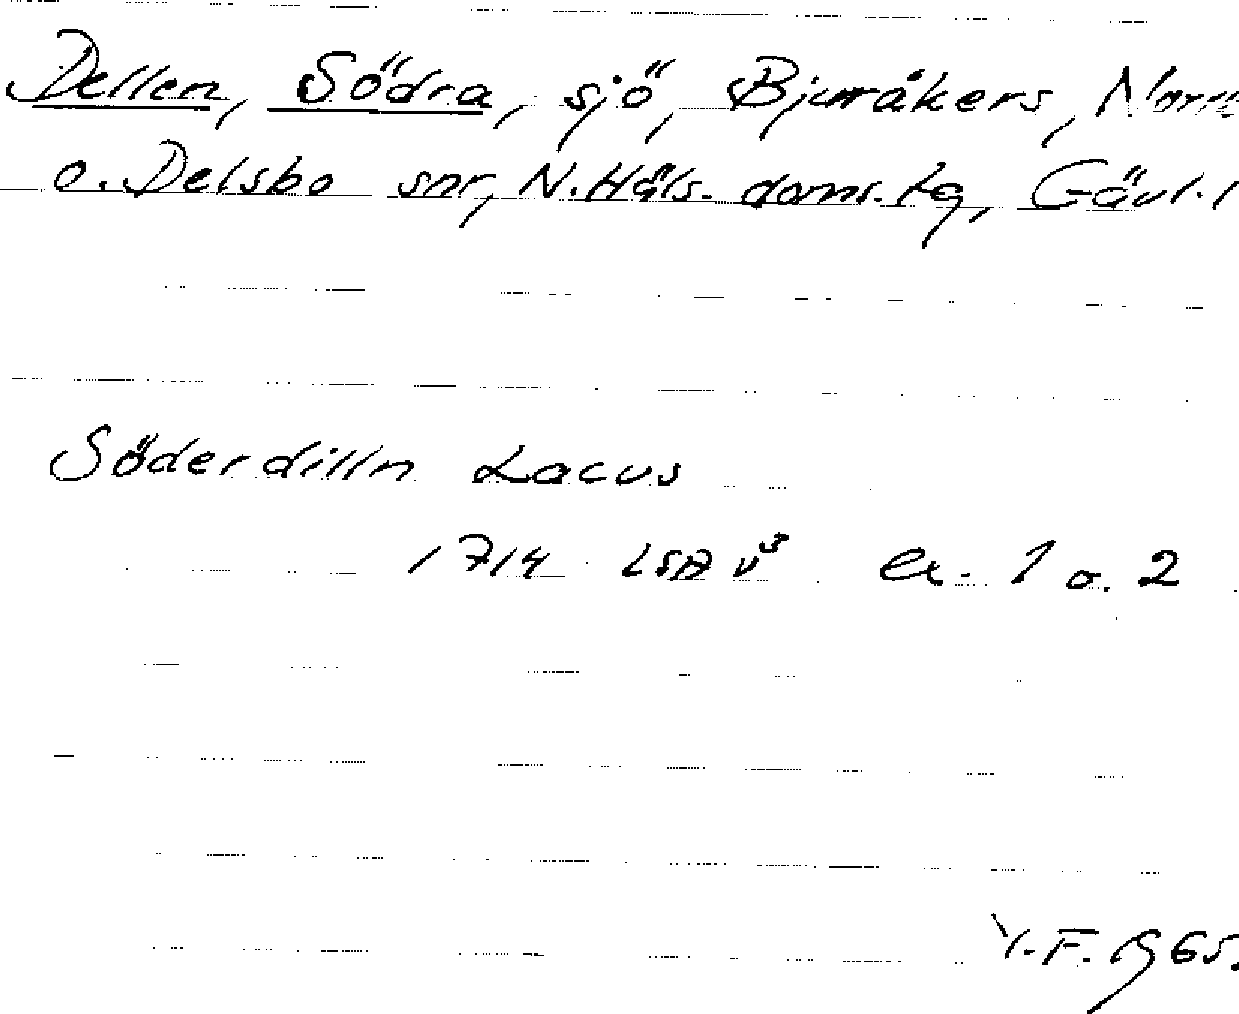 Dellen, Södra, sjö, Bjuråkers, Norr
o. Delsbo snr, N. Häls. doms.tg, Gävl. l
Söderdilln Lacus
1714 LSA v³ ex. 1 o. 2
Y.F. 1965.